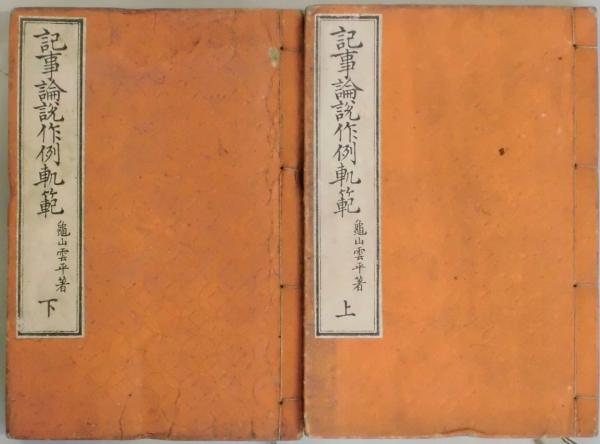 記事論説作例軌範
龜山雲平著
上
記事論説作例軌範
龜山雲平著
下